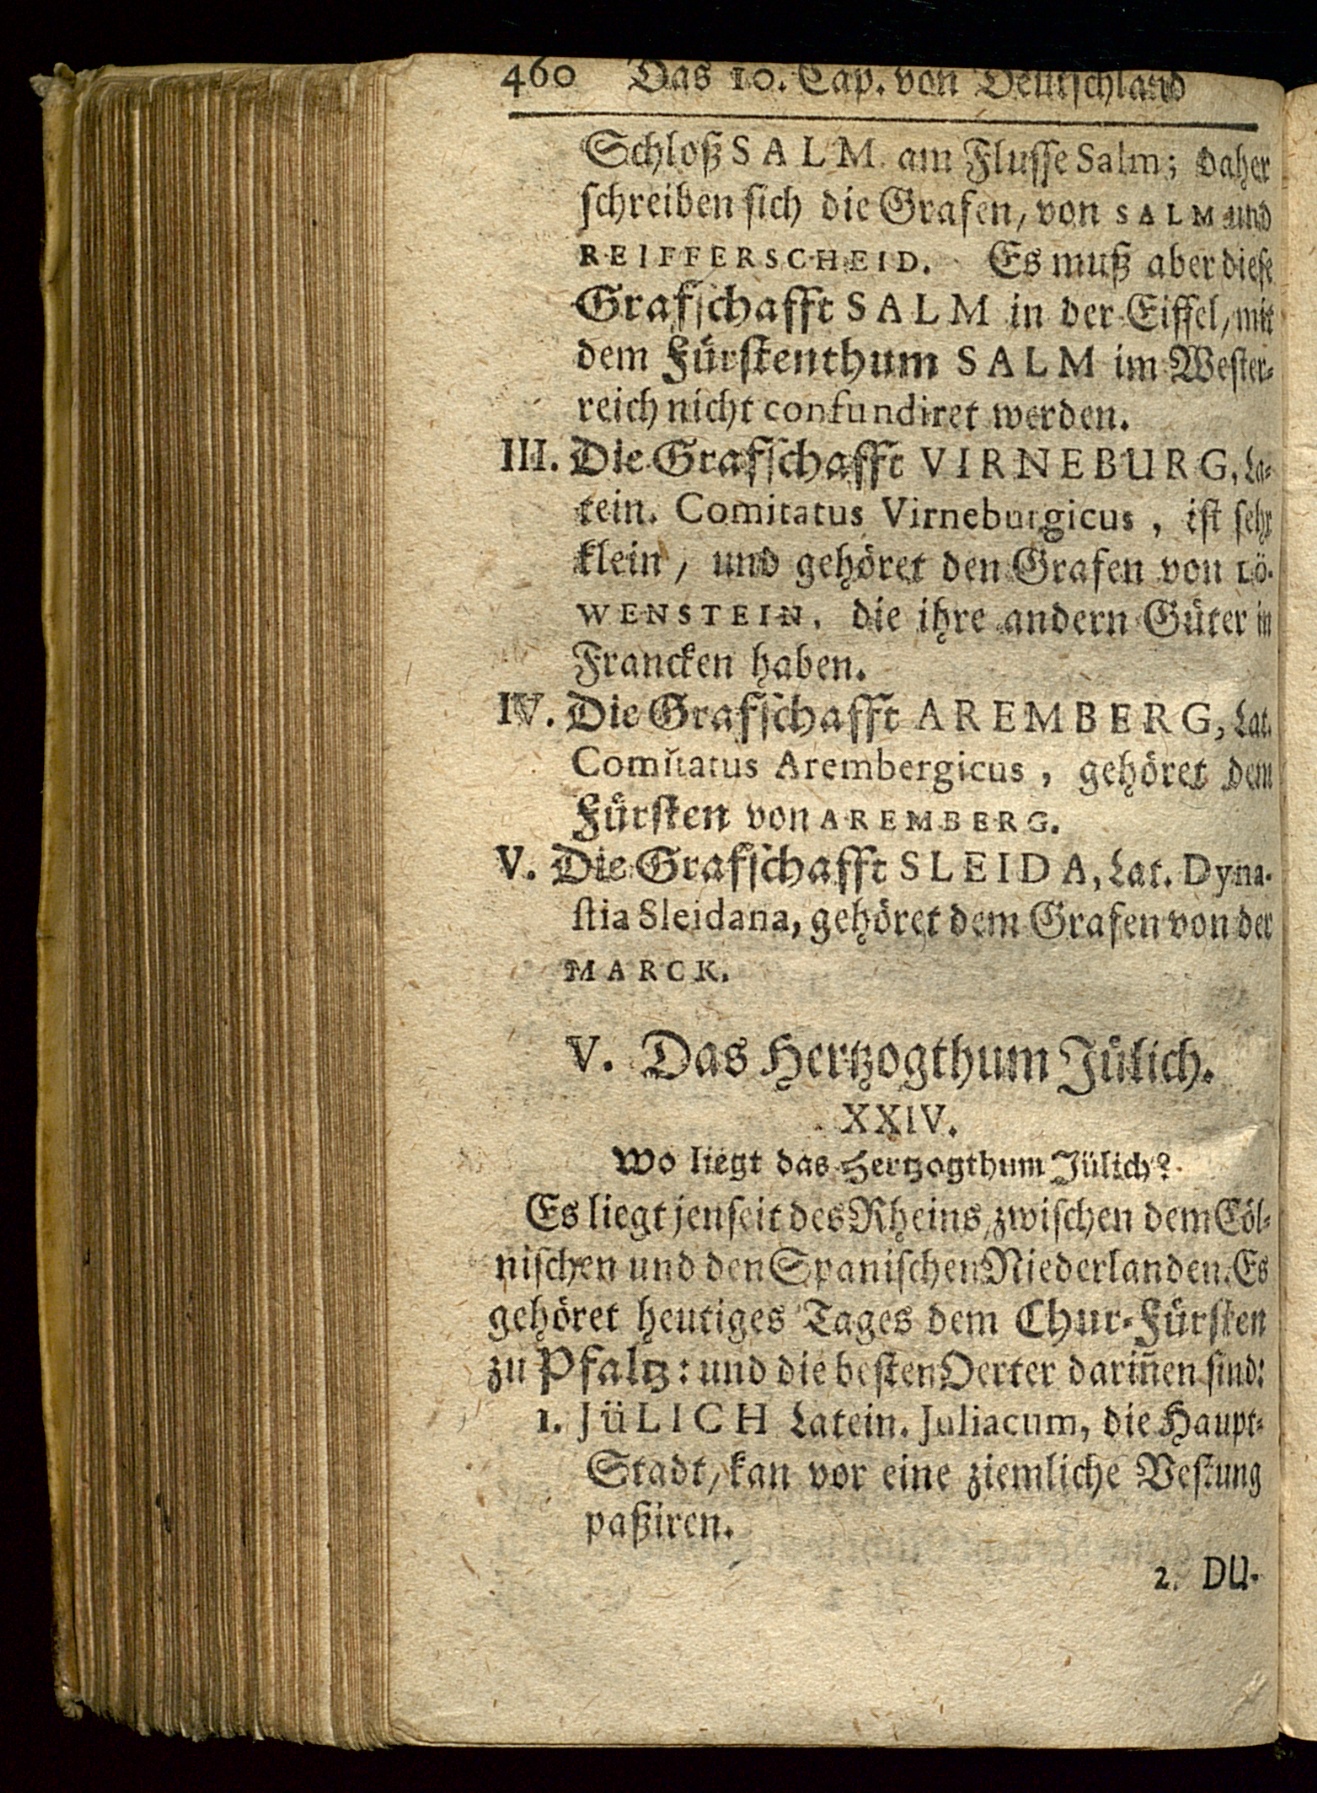 460 Das 10. Cap. von Deutschland
Schloß SALM am Flusse Salm; daher
schreiben sich die Grafen, von SALM und
REIFFERSCHEID. Es muß aber diese
Grafschafft SALM in der Eiffel, mit
dem Fürstenthum SALM im Wester-
reich nicht confundiret werden.
III. Die Grafschafft VIRNEBURG, La-
tein. Comitatus Virneburgicus, ist sehr
klein, und gehöret den Grafen von LÖ-
WENSTEIN, die ihre andern Güter in
Francken haben.
IV. Die Grafschafft AREMBERG, Lat.
Comitatus Arembergicus, gehöret dem
Fürsten von AREMBERG.
V. Die Grafschafft SLEIDA, Lat. Dyna-
stia Sleidana, gehöret dem Grafen von der
MARCK.
V. Das Hertzogthum Jülich.
XXIV.
Wo liegt das Hertzogthum Jülich?
Es liegt jenseit des Rheins, zwischen dem Cöl-
nischen und den Spanischen Niederlanden. Es
gehöret heutiges Tages dem Chur-Fürsten
zu Pfaltz: und die besten Oerter darin̄en sind:
1. JüLICH Latein. Juliacum, die Haupt-
Stadt, kan vor eine ziemliche Vestung
paßiren.
2. DU-